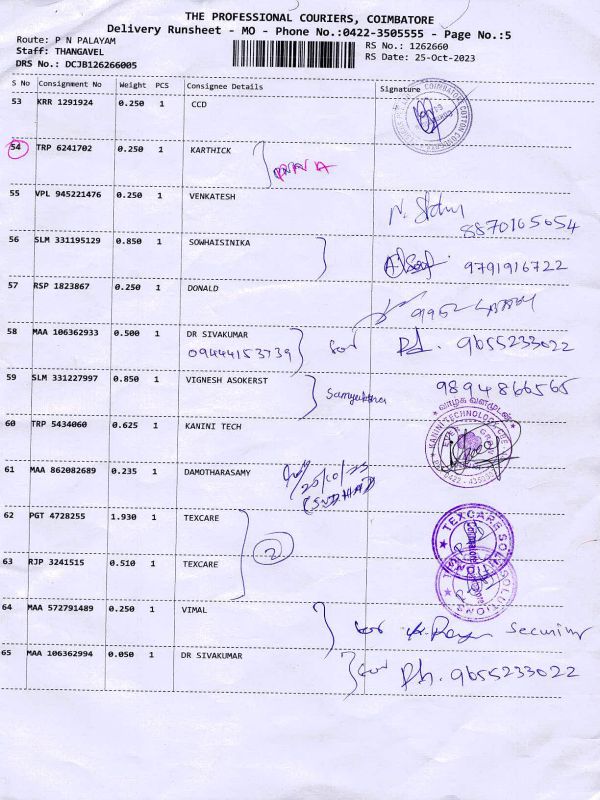 THE PROFESSIONAL COURIERS, COIMBATORE
Delivery Runsheet - MO - Phone No.:0422-3505555 - Page No.:5
Route: P N PALAYAM
Staff: THANGAVEL
DRS No.: DCJB126266005
RS No.: 1262660
RS Date: 25-Oct-2023
S No Consignment No Weight PCS Consignee Details Signature
53 KRR 1291924 0.250 1 CCD
54 TRP 6241702 0.250 1 KARTHICK
55 VPL 945221476 0.250 1 VENKATESH
8870165654
56 SLM 331195129 0.850 1 SOWHAISINIKA
9791916722
57 RSP 1823867 0.250 1 DONALD
58 MAA 106362933 0.500 1 DR SIVAKUMAR
09444153739 for 9655233022
59 SLM 331227997 0.850 1 VIGNESH ASOKERST
9894866565
வாழ்க வளமுடன்
60 TRP 5434060 0.625 1 KANINI TECH
KANINI TECHNOLOGY
61 MAA 862082689 0.235 1 DAMOTHARASAMY
62 PGT 4728255 1.930 1 TEXCARE
TEXCARE SOLUTIONS
2
63 RJP 3241515 0.510 1 TEXCARE
SOLUTIONS
64 MAA 572791489 0.250 1 VIMAL
for Security
65 MAA 106362994 0.050 1 DR SIVAKUMAR
for Ph. 9655233022